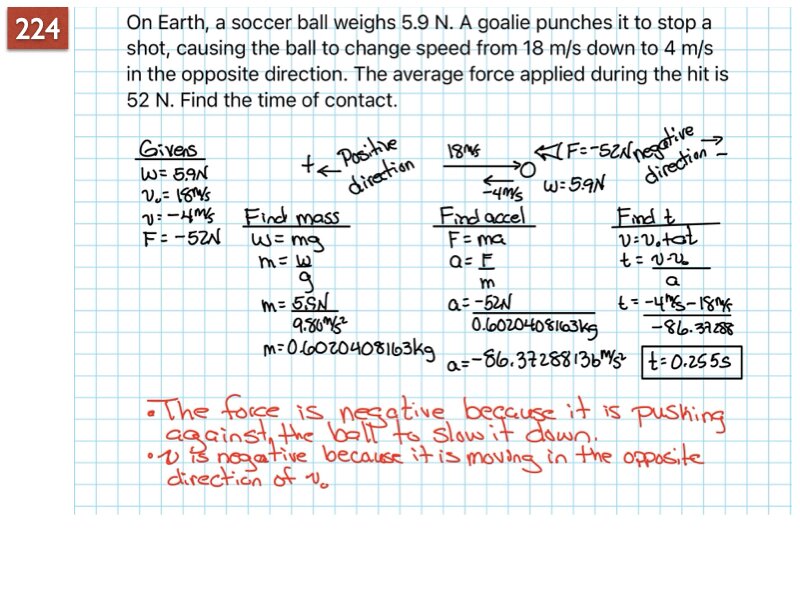 224
On Earth, a soccer ball weighs 5.9 N. A goalie punches it to stop a
shot, causing the ball to change speed from 18 m/s down to 4 m/s
in the opposite direction. The average force applied during the hit is
52 N. Find the time of contact.
Givens
W = 5.9N
v₀ = 18m/s
v = -4m/s
F = -52N
+ ← Positive
direction
18m/s
-4m/s
F=-52N
W=5.9N
negative →
direction -
Find mass
W = mg
m = W/g
m = 5.9N/9.80m/s²
m=0.6020408163kg
Find accel
F = ma
a = F/m
a = -52N/0.6020408163kg
a=-86.37288136m/s²
Find t
v=v₀+at
t = v-v₀/a
t = -4m/s-18m/s/-86.37288
t=0.255s
• The force is negative because it is pushing
against the ball to slow it down.
• v is negative because it is moving in the opposite
direction of v₀